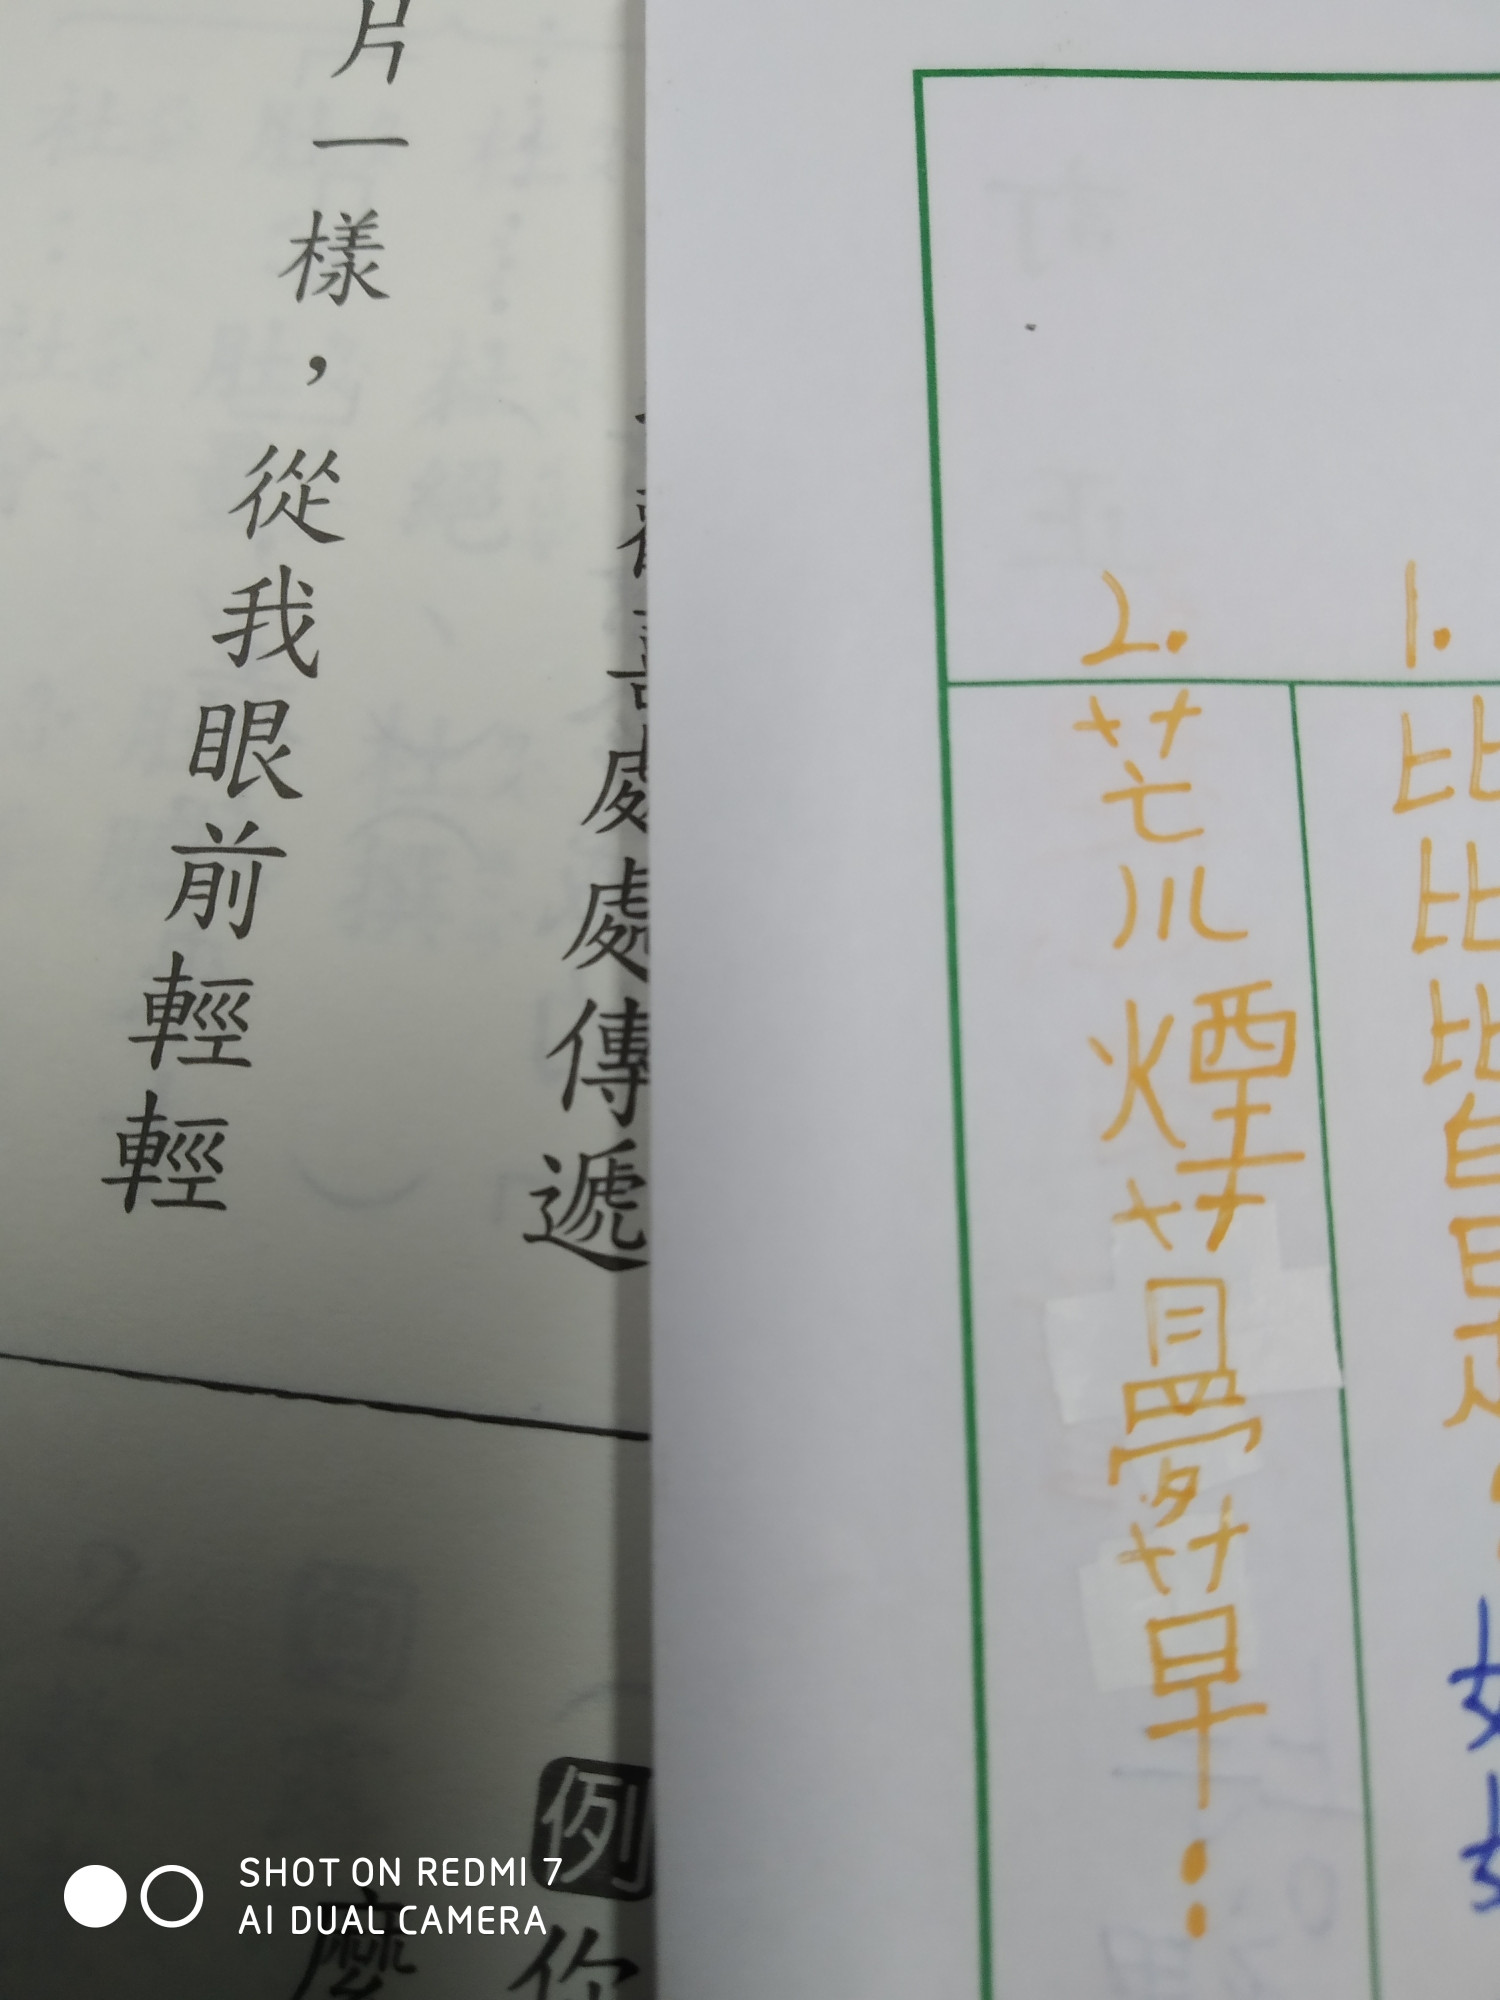 1.比比皆是
2.荒煙蔓草：
處處傳遞
片一樣，從我眼前輕輕
例 你
麼
SHOT ON REDMI 7
AI DUAL CAMERA